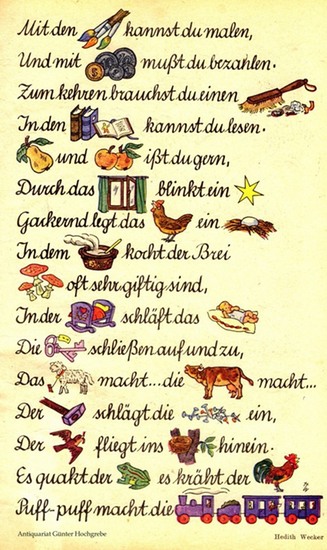 Mit den kannst du malen,
Und mit mußt du bezahlen.
Zum kehren brauchst du einen
In den kannst du lesen.
und ißt du gern,
Durch das blinkt ein
Gackernd legt das ein
In dem kocht der Brei
oft sehr giftig sind,
In der schläft das
Die schließen auf und zu,
Das macht... die macht...
Der schlägt die ein,
Der fliegt ins hinein.
Es quakt der es kräht der
Puff-puff macht die
Antiquariat Günter Hochgrebe
Hedith Wecker